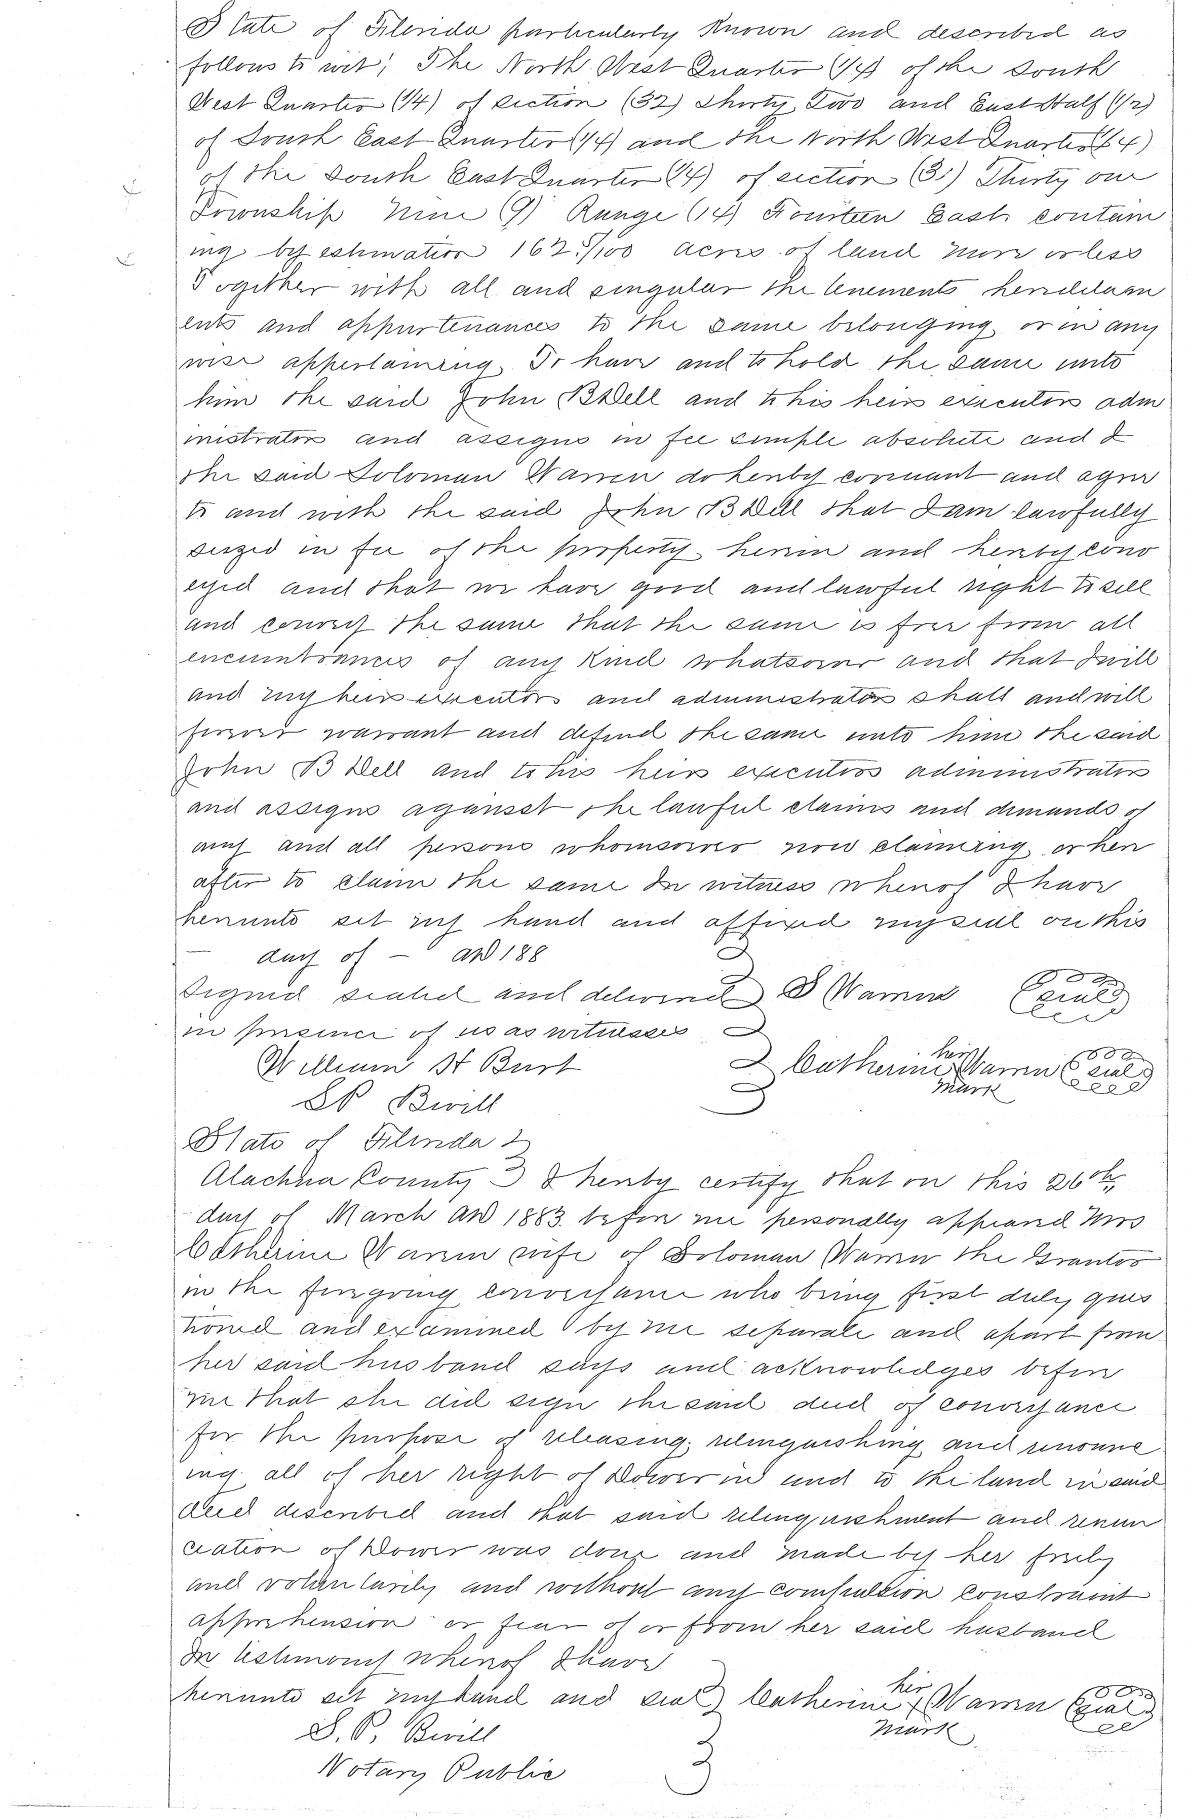 State of Florida particularly known and described as
follows to wit; The North West Quarter (1/4) of the South
West Quarter (1/4) of section (32) Thirty Two and East Half (1/2)
of South East Quarter (1/4) and the North West Quarter (1/4)
of the South East Quarter (1/4) of section (31) Thirty one
Township Nine (9) Range (14) Fourteen East contain
ing by estimation 162 /100 acres of land more or less
Together with all and singular the tenements heriditam
ents and appurtenances to the same belonging or in any
wise appertaining. To have and to hold the same unto
him the said John B Dell and to his heirs executors adm
inistrators and assigns in fee simple absolute and I
the said Soloman Warren do hereby covenant and agree
to and with the said John B Dell that I am lawfully
seized in fee of the property herein and hereby conv
eyed and that we have good and lawful right to sell
and convey the same that the same is free from all
encumbrances of any kind whatsoever and that I will
and my heirs executors and administrators shall and will
forever warrant and defend the same unto him the said
John B Dell and to his heirs executors administrators
and assigns against the lawful claims and demands of
any and all persons whomsoever now claiming or here
after to claim the same In witness whereof I have
hereunto set my hand and affixed my seal on this
— day of — AD 188
Signed sealed and delivered S Warren (seal)
in presence of us as witnesses
her
William H Burt Catherine x Warren (seal)
mark
S P Bevill
State of Florida
Alachua County I hereby certify that on this 26th
day of March AD 1883 before me personally appeared Mrs
Catherine Warren wife of Soloman Warren the Grantor
in the foregoing conveyance who being first duly ques
tioned and examined by me separate and apart from
her said husband says and acknowledges before
me that she did sign the said deed of conveyance
for the purpose of releasing, relinquishing and renounc
ing all of her right of Dower in and to the land in said
deed described and that said relinquishment and renun
ciation of Dower was done and made by her freely
and voluntarily and without any compulsion constraint
apprehension or fear of or from her said husband
In testimony whereof I have
her
hereunto set my hand and seal Catherine x Warren (seal)
mark
S. P. Bevill
Notary Public